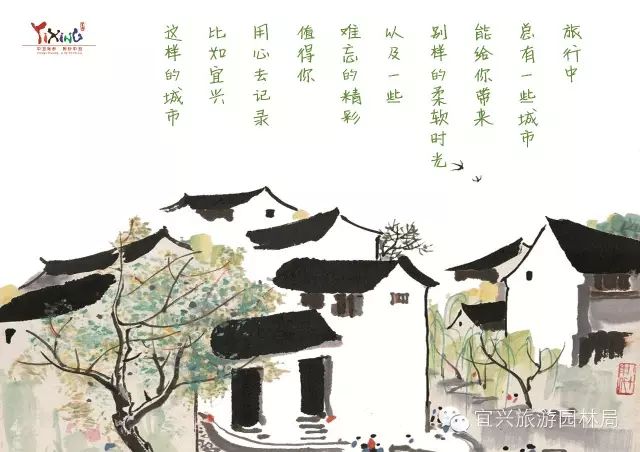 YiXING
旅行中
总有一些城市
能给你带来
别样的柔软时光
以及一些
难忘的精彩
值得你
用心去记录
比如宜兴
这样的城市
宜兴旅游园林局